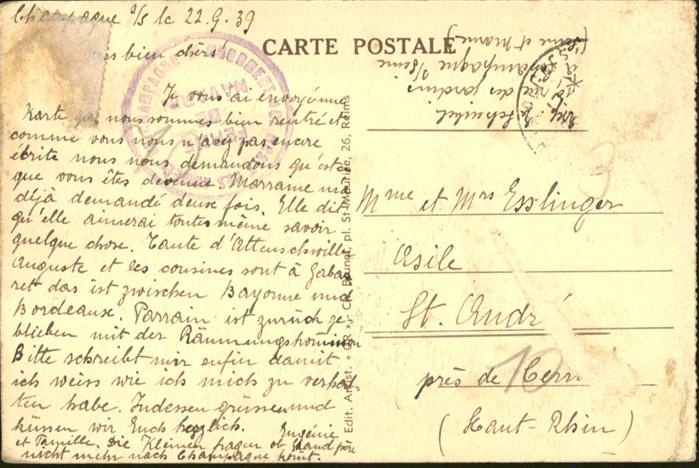 Champagne s/S le 22.9.39
bien chers
Je vous ai envoyé une
Karte que nous sommes bien rentré et
comme vous nous n'avez pas encore
écrite nous nous demandons qu'est-
que vous êtes devenue. Marraine m'a
déjà demandé deux fois. Elle dit
qu'elle aimerai toutes même savoir
quelque chose. Tante d'Attenschwiller
Auguste et les cousines sont à Gabar
ret das ist zwischen Bayonne und
Bordeaux. Parrain ist zurück ge
blieben mit der Räumungskommission
Bitte schreibt mir enfin damit
ich weiss wie ich mich zu verhal
ten habe. Indessen grüssen und
küssen wir Euch herzlich. Eugénie
et famille. Die Kleinen fragen ob Grand père
nicht mehr nach Champagne kommt.
CARTE POSTALE
Exp. Scheibel
rue des jardins
Champagne s/Seine
(Seine et Marne)
Edit. Artist. Ch. Brunel, pl. St-Maurice, 26, Reims
Mme et Mrs Esslinger
Asile
St. André
près de Cern
(Haut-Rhin)
10
3